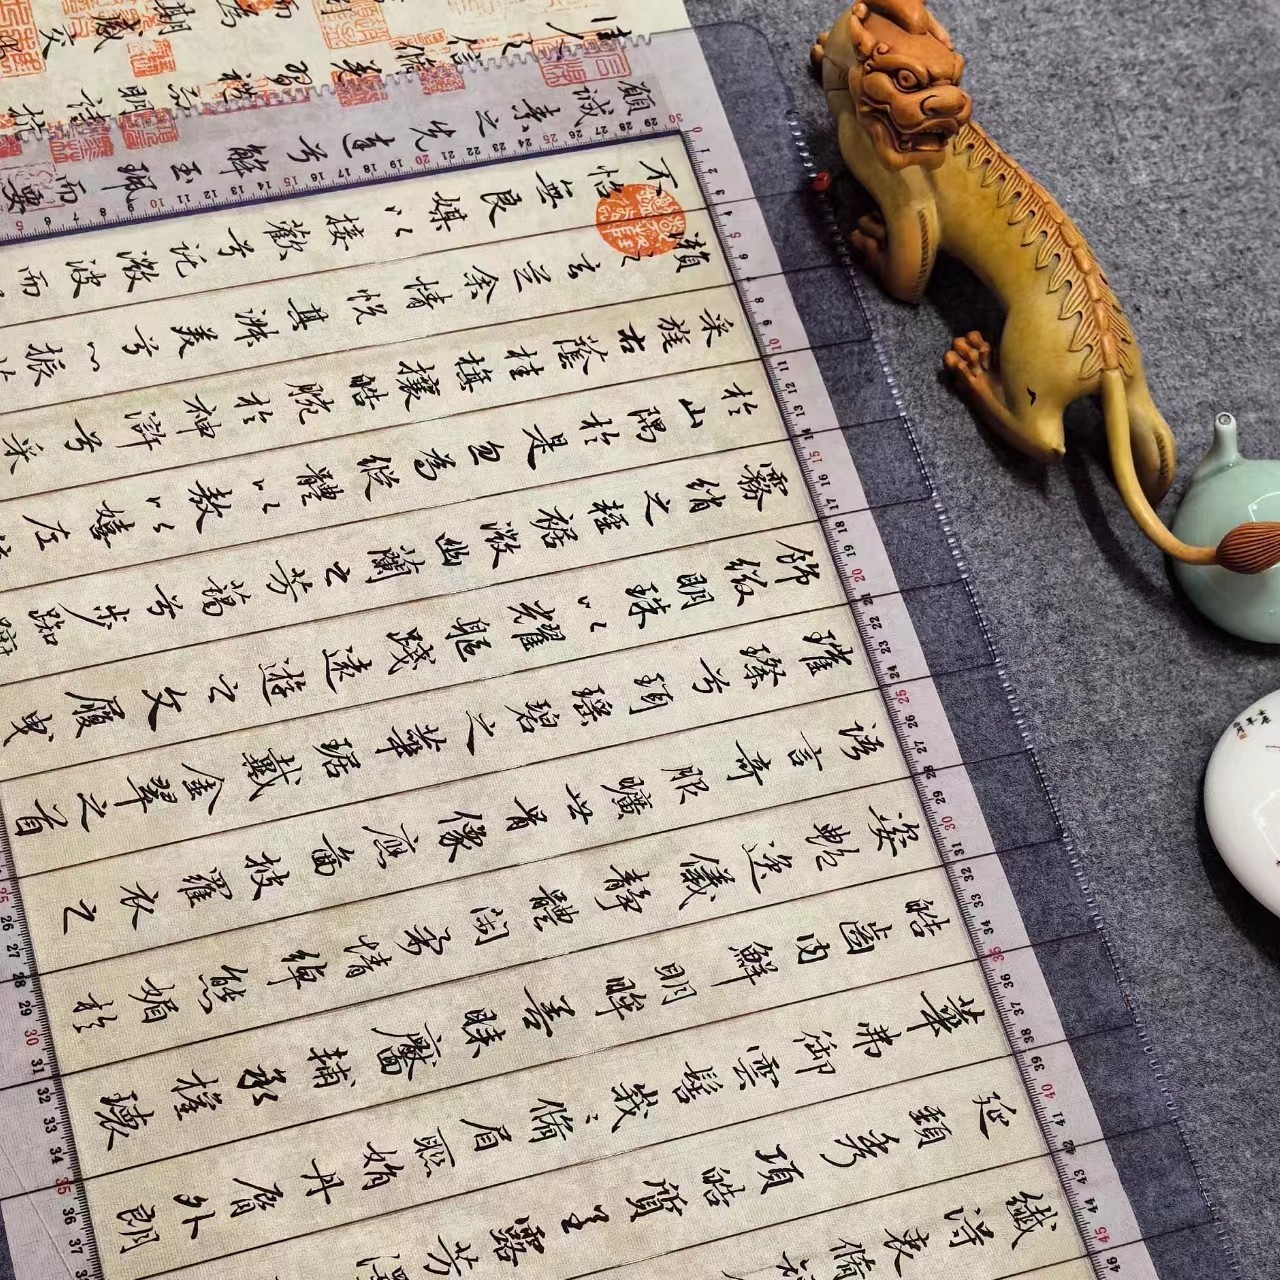 纖得衷脩
延頸秀項皓質呈露芳澤
華弗御雲髻峩〻脩眉聯娟丹脣外朗
皓齒內鮮明眸善睞靨輔承權瓌
姿艷逸儀靜體閑柔情綽態媚於
語言奇服曠世骨像應圖披羅衣之
璀璨兮珥瑤碧之華琚戴金翠之首
飾綴明珠以耀軀踐遠遊之文履曳
霧綃之輕裾微幽蘭之芳藹兮步踟躕
於山隅於是忽焉縱體以遨以嬉左倚
采旄右蔭桂旗攘皓腕於神滸兮采
瀨玄芝余情悅其淑美兮心振
不怡無良媒以接歡兮託微波而
願誠素之先達兮解玉珮而要
佳人信脩羌習禮而明詩抗
而為期感交